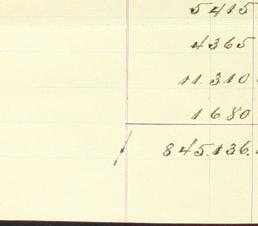 5415
4365
11.310
1680
845.136.